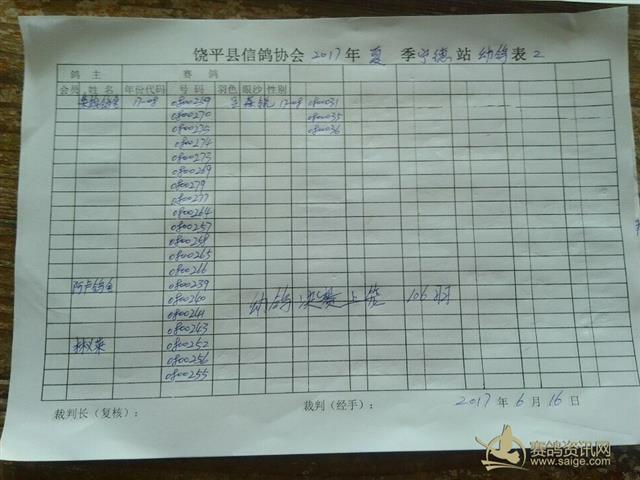 饶平县信鸽协会 2017 年 夏 季 宁德 站 幼鸽 表 2
鸽 主 赛 鸽
会员 姓 名 年份代码 号 码 羽色 眼沙 性别
17-08 0800259 17-08 0800031
0800270 0800035
0800275 0800036
0800274
0800273
0800269
0800279
0800277
0800264
0800257
0800258
0800265
0800266
0800239
0800240 幼鸽决赛上笼 106羽
0800241
0800243
0800252
0800256
0800255
裁判长(复核): 裁判(经手): 2017 年 6 月 16 日
赛鸽资讯网
www.saige.com